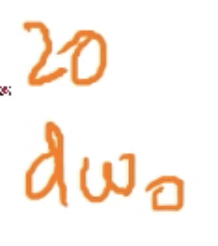 20
dwo